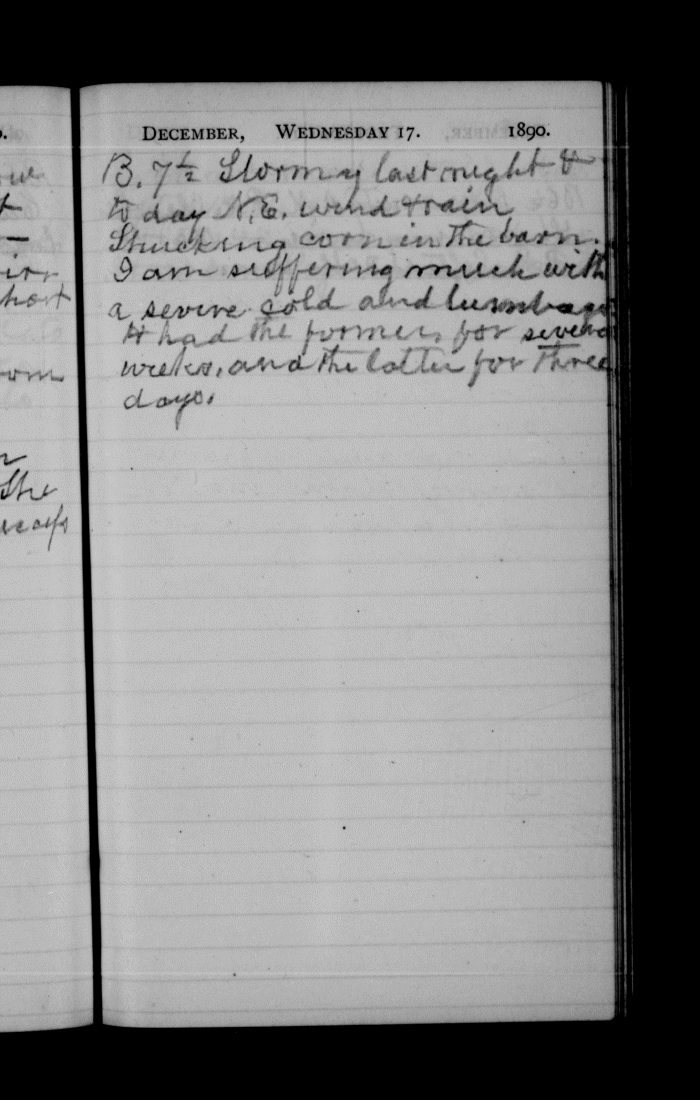 DECEMBER, WEDNESDAY 17. 1890.
B. 7½ Stormy last night &
to day N.E. wind & rain
Shucking corn in the barn.
I am suffering much with
a severe cold and lumbago
had the former, for several
weeks, and the latter for three
days.